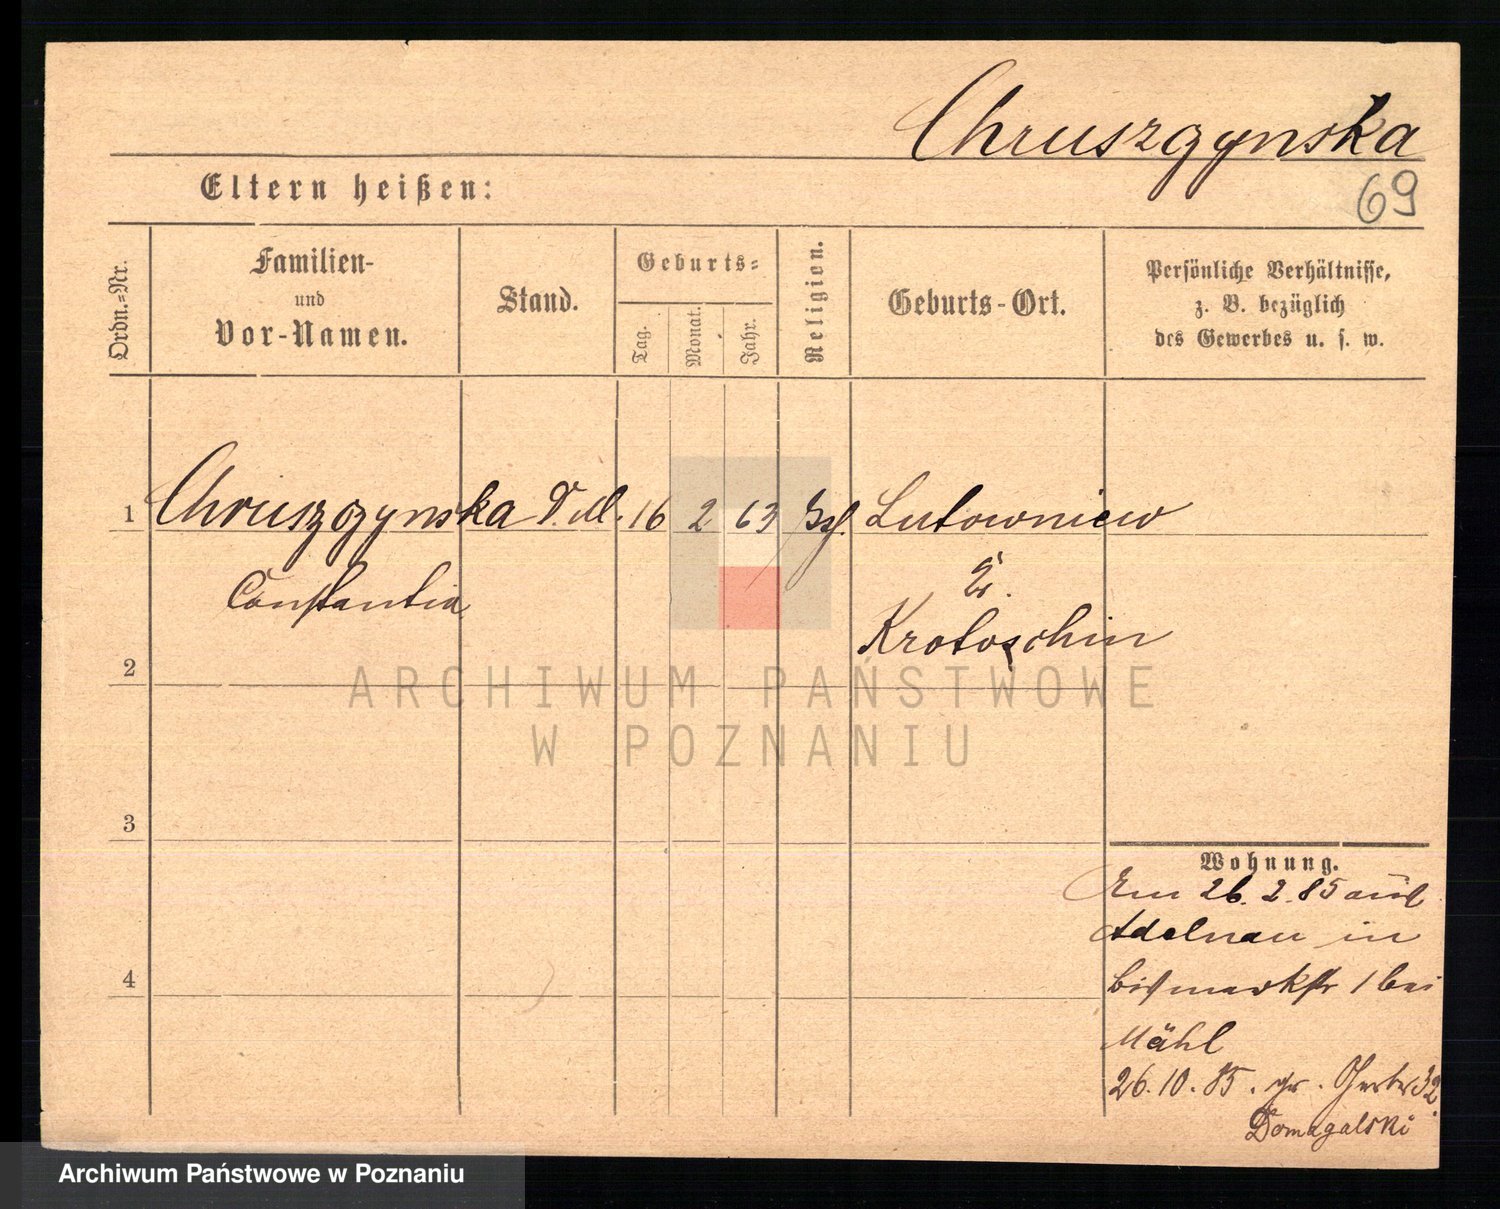 Chruszczynska
69
Eltern heißen:
Ordn.=Nr.
Familien-
und
Vor-Namen.
Stand.
Geburts=
Tag.
Monat.
Jahr.
Religion.
Geburts-Ort.
Persönliche Verhältnisse,
z. B. bezüglich
des Gewerbes u. s. w.
1 Chruszczynska D. M. 16 2 63 Lutowniew
Constantia
Kr.
Krotoschin
2
ARCHIWUM PAŃSTWOWE
W POZNANIU
3
Wohnung.
Am 26. 2. 85 aus
Adelnau in
Bismarkstr 1 bei
4
Mähl
26. 10. 85. gr. Gerber 32
Domagalski
Archiwum Państwowe w Poznaniu